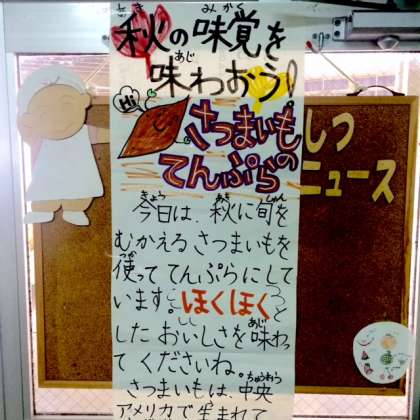 秋の味覚を
味わおう!
Hi
さつまいもの
てんぷら
今日は、秋に旬を
むかえるさつまいもを
使っててんぷらにして
います。ほくほくと
したおいしさを味わっ
てくださいね。
さつまいもは、中央
アメリカで生まれて
しつ
ニュース